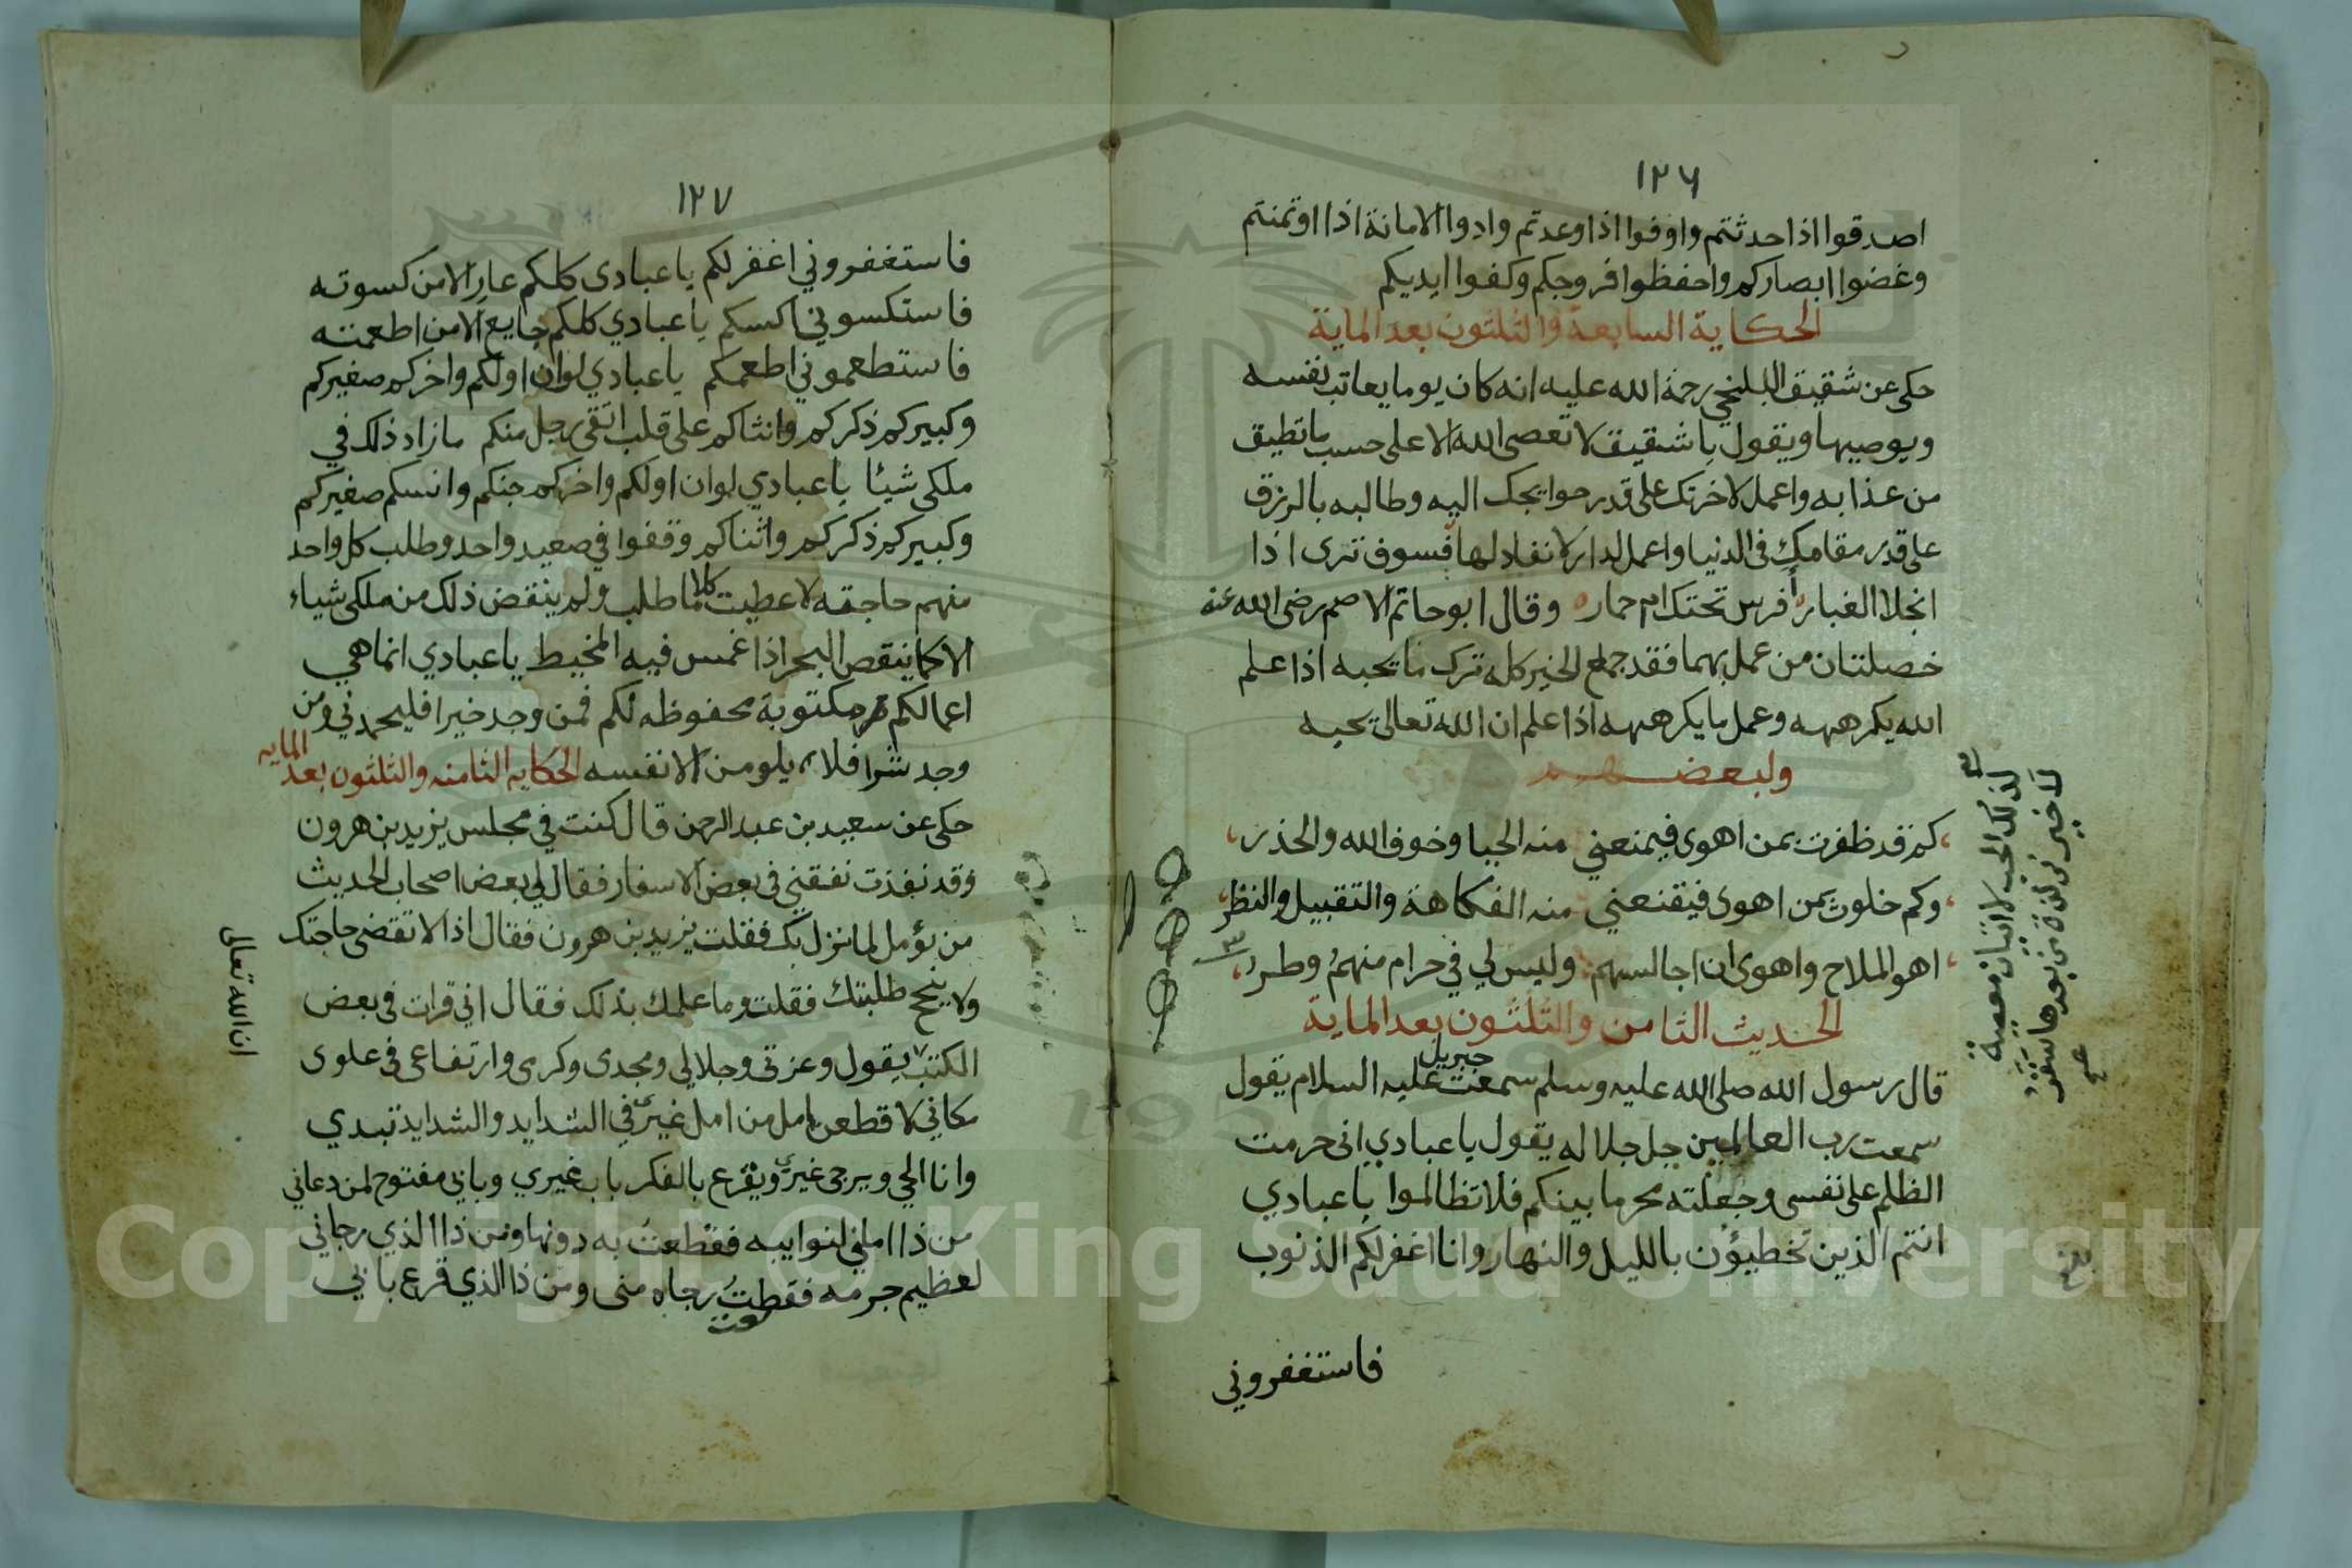 ١٢٦
اصدقوا اذا حدثتم واوفوا اذا وعدتم وادوا الامانة اذا اوتمنتم
وغضوا ابصاركم واحفظوا فروجكم وكفوا ايديكم
الحكاية السابعة والثلثون بعد الماية
حكى عن شقيق البلخي رحمة الله عليه انه كان يوما يعاتب نفسه
ويوصيها ويقول يا شقيق لا تعصى الله الا على حسب ما تطيق
من عذابه واعمل لاخرتك على قدر حوايجك اليه وطالبه بالرزق
على قدر مقامك في الدنيا واعمل لدار لا نفاد لها فسوف ترى اذا
انجلا الغبار أفرس تحتك ام حمار وقال ابو حاتم الاصم رضى الله عنه
خصلتان من عمل بهما فقد جمع الخير كله ترك ما يحبه اذا علم
الله يكرهه وعمل ما يكرهه اذا علم ان الله تعالى يحبه
ولبعضهم
كم قد ظفرت بمن اهوى فيمنعني منه الحيا وخوف الله والحذر
وكم خلوت بمن اهوى فيقنعني منه الفكاهة والتقبيل والنظر
اهو الملاح واهوى ان اجالسهم وليس لي في حرام منهم وطر
كذلك الحب لا اتيان معصية
لا خير في لذة من بعدها سقر
صح
الحديث الثامن والثلثون بعد الماية
قال رسول الله صلى الله عليه وسلم سمعت جبريل عليه السلام يقول
سمعت رب العالمين جل جلاله يقول يا عبادي انى حرمت
الظلم على نفسى وجعلته محرما بينكم فلا تظالموا يا عبادي
انتم الذين تخطيؤن بالليل والنهار وانا اغفر لكم الذنوب
فاستغفروني
١٢٧
فاستغفروني اغفر لكم يا عبادى كلكم عار الا من كسوته
فاستكسوني اكسكم يا عبادي كلكم جايع الا من اطعمته
فاستطعموني اطعمكم يا عبادي لو ان اولكم واخركم صغيركم
وكبيركم ذكركم وانثاكم على قلب اتقى رجل منكم ما زاد ذلك في
ملكى شيئا يا عبادي لو ان اولكم واخركم جنكم وانسكم صغيركم
وكبيركم ذكركم وانثاكم وقفوا في صعيد واحد وطلب كل واحد
منهم حاجته لاعطيت كلا ما طلب ولم ينقض ذلك من ملكى شياء
الا كما ينقص البحر اذا غمس فيه المخيط يا عبادي انما هي
اعمالكم مكتوبة محفوظه لكم فمن وجد خيرا فليحمدني ومن
وجد شرا فلا يلومن الا نفسه الحكايه الثامنه والثلثون بعد المايه
حكى عن سعيد بن عبد الرحمن قال كنت في مجلس يزيد بن هرون
وقد نفذت نفقتي في بعض الاسفار فقال لي بعض اصحاب الحديث
من تؤمل لما نزل بك فقلت يزيد بن هرون فقال اذا لا تقضى حاجتك
ولا ينجح طلبتك فقلت وما علمك بذلك فقال اني قرات في بعض
الكتب يقول وعزتي وجلالي ومجدى وكرمى وارتفاعى في علوى
ان الله تعالى
مكاني لا قطعن امل من امل غيرى في الشدايد والشدايد تبدي
وانا الحي ويرجى غيرى ويقرع بالفكر باب غيري وبابي مفتوح لمن دعاني
من ذا املني لنوايبه فقطعت به دونها ومن ذا الذي رجاني
لعظيم جرمه فقطعت رجاه منى ومن ذا الذي قرع بابي